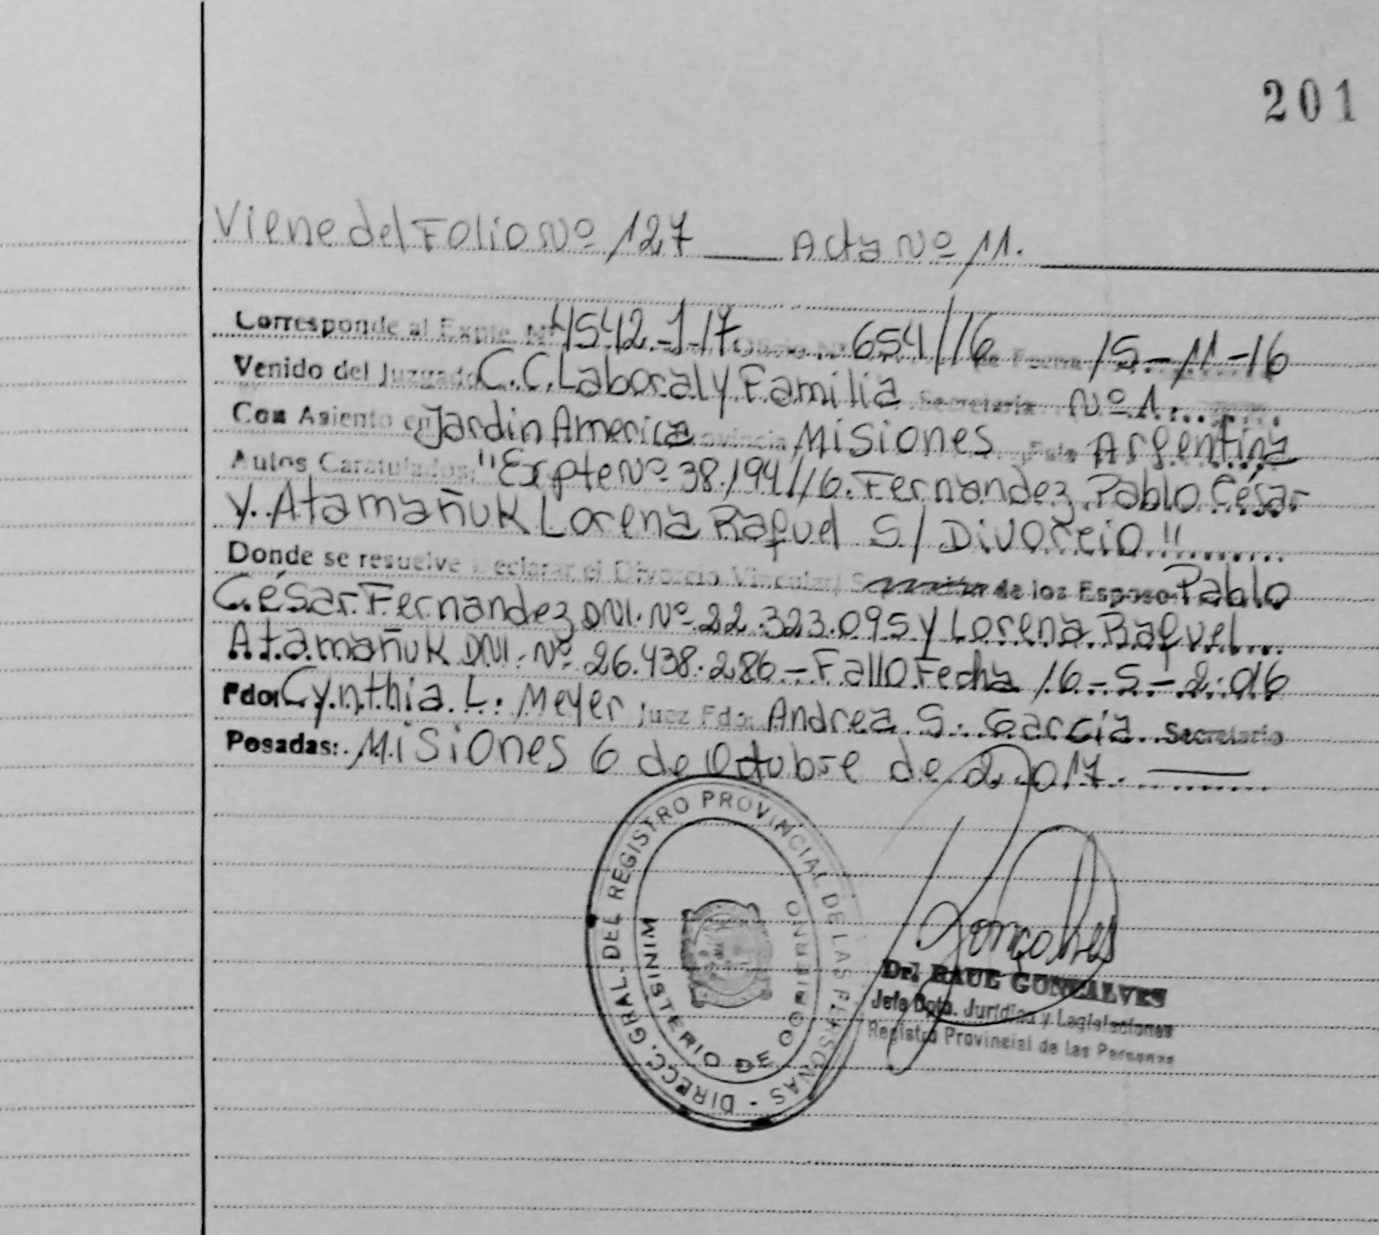 201
Viene del Folio Nº 127 Acta Nº 11.
Corresponde al Expte. Nº 4542-J-17. Oficio Nº 654/16 de Fecha 15-11-16
Venido del Juzgado C.C. Laboral y Familia Secretaria Nº 1
Con Asiento en Jardin America Provincia Misiones Pais Argentina
Autos Caratulados: "Expte Nº 38.194/16. Fernandez, Pablo César
y Atamañuk Lorena Raquel S/ Divorcio"
Donde se resuelve Declarar el Divorcio Vincular/ de los Esposo Pablo
César Fernandez DNI. Nº 22.323.095 y Lorena Raquel
Atamañuk DNI. Nº 26.438.286 - Fallo Fecha 16-5-2.016
Fdo: Cynthia. L. Meyer Juez Fdo: Andrea S. Garcia Secretario
Posadas: Misiones 6 de Octubre de 2.017.
DIRECC. GRAL. DEL REGISTRO PROVINCIAL DE LAS PERSONAS -
MINISTERIO DE GOBIERNO
Gonçalves
Dr. RAUL GONZALVES
Jefe Dpto. Jurídico y Legislaciones
Registro Provincial de las Personas